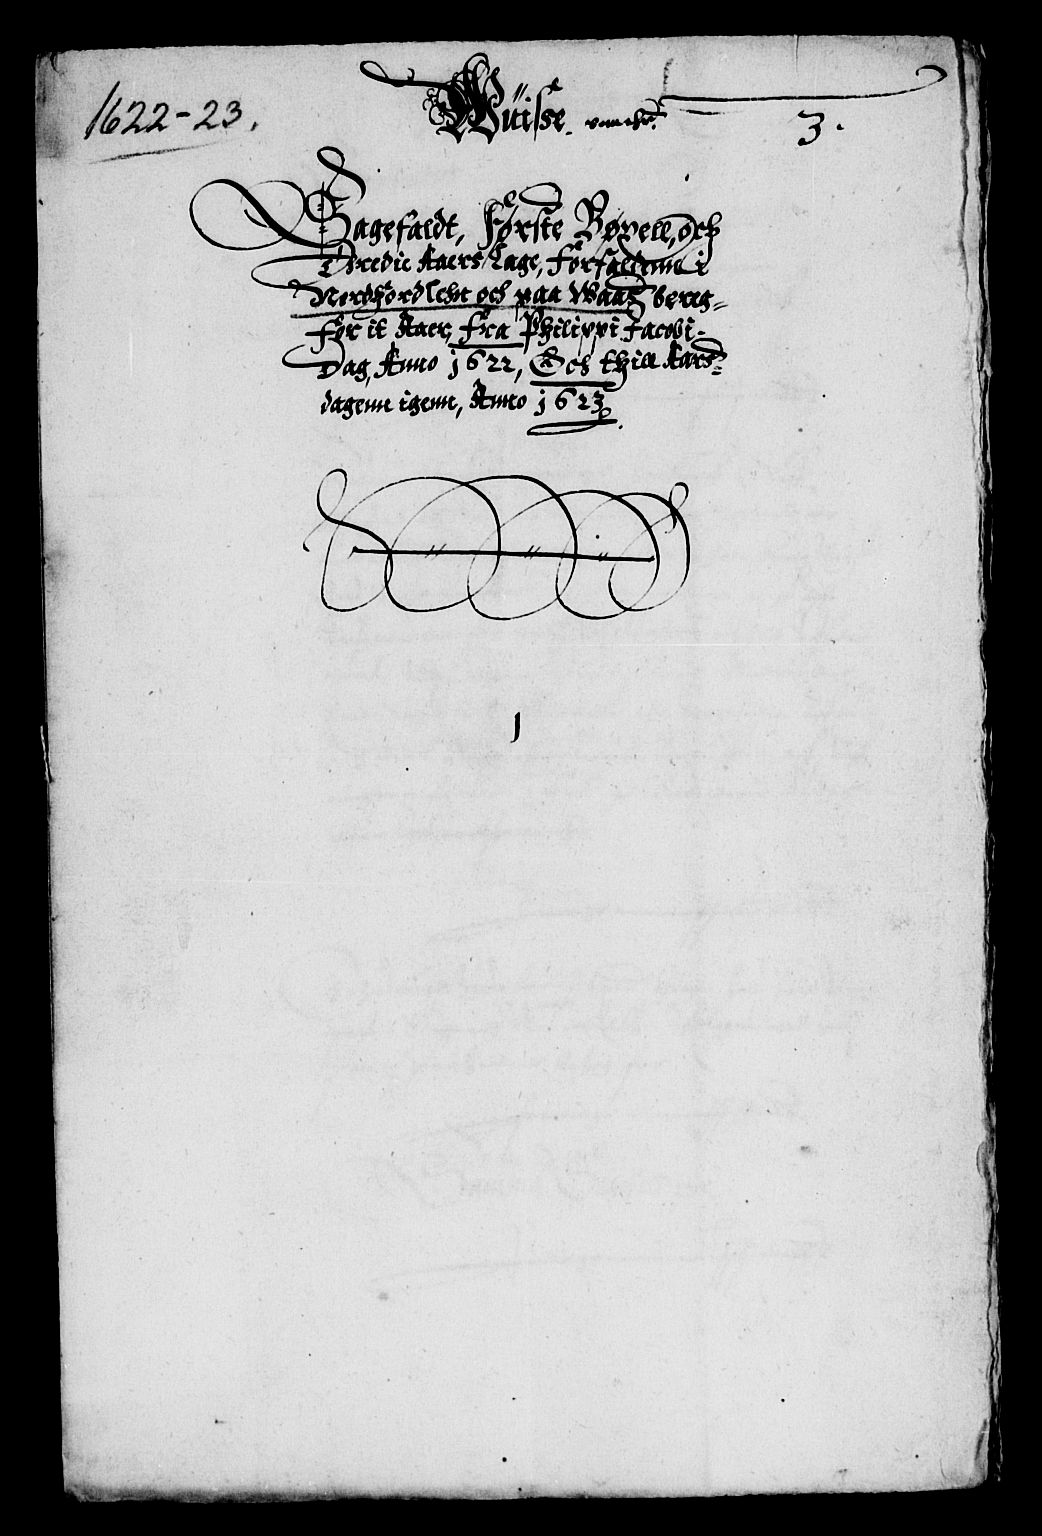 1622-23.
Wüisse
3.
Sagefaldt, Første Bøxell, och
Tredie Aars Tage, Forfaldenn i
Nordfiord lehn och paa Waag bereg-
for it Aar, fra Philippi Jacobi
Dag, Anno 1622, Och thill Aars-
dagenn igenn, Anno 1623
1